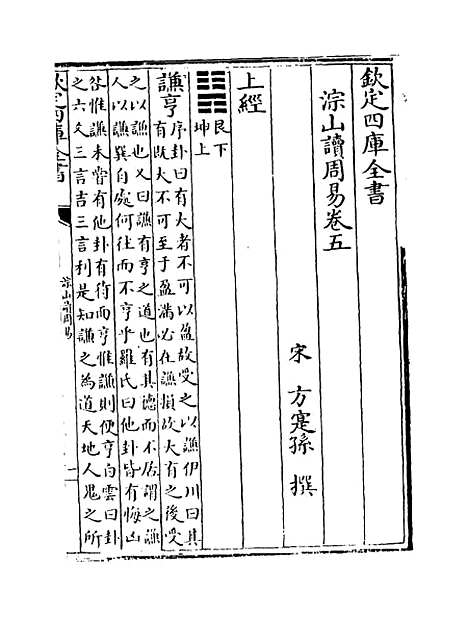 欽定四庫全書
淙山讀周易卷五
宋 方寔孫 撰
上經
艮下
坤上
謙亨
序卦曰有大者不可以盈故受之以謙伊川曰其
有既大不可至于盈滿必在謙損故大有之後受
之以謙也又曰謙有亨之道也有其德而不居謂之謙
人以謙巽自處何往而不亨乎羅氏曰他卦皆有悔凶
咎惟謙未嘗有他卦有待而亨惟謙則便亨白雲曰卦
之六爻三言吉三言利是知謙之為道天地人鬼之所
欽定四庫全書
淙山讀周易
一